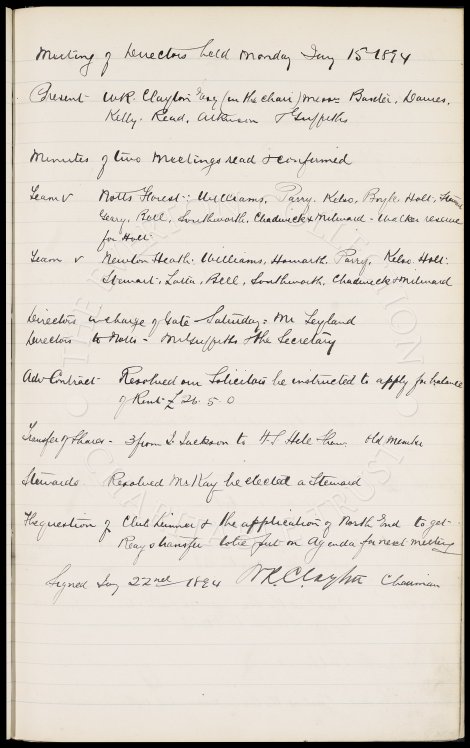 Meeting of Directors held Monday Jany 15th 1894
Present - W.R. Clayton Esq (in the chair) Messrs Baxter, Davies,
Kelly, Read, Atkinson & Griffiths
Minutes of two Meetings read & confirmed
Team v Notts Forest: Williams, Parry, Kelso, Boyle, Holt,
Geary, Bell, Southworth, Chadwick & Milward - Walker reserve
for Holt
Team v Newton Heath: Williams, Howarth, Parry, Kelso, Holt
Stewart, Latta, Bell, Southworth, Chadwick & Milward
Directors in charge of Gate - Saturday = Mr Leyland
Directors to Notts - Mr Griffiths & the Secretary
Adv Contract - Resolved our Solicitors be instructed to apply for balance
of Rent £26.5.0
Transfer of Shares - 3 from Jackson to old member
Stewards Resolved McKay be elected a Steward
The question of Club dinner & the application of North End to get
Reays transfer to be put on Agenda for next meeting
Signed Jany 22nd 1894 W.R. Clayton Chairman
THE EVERTON COLLECTION
CHARITABLE TRUST